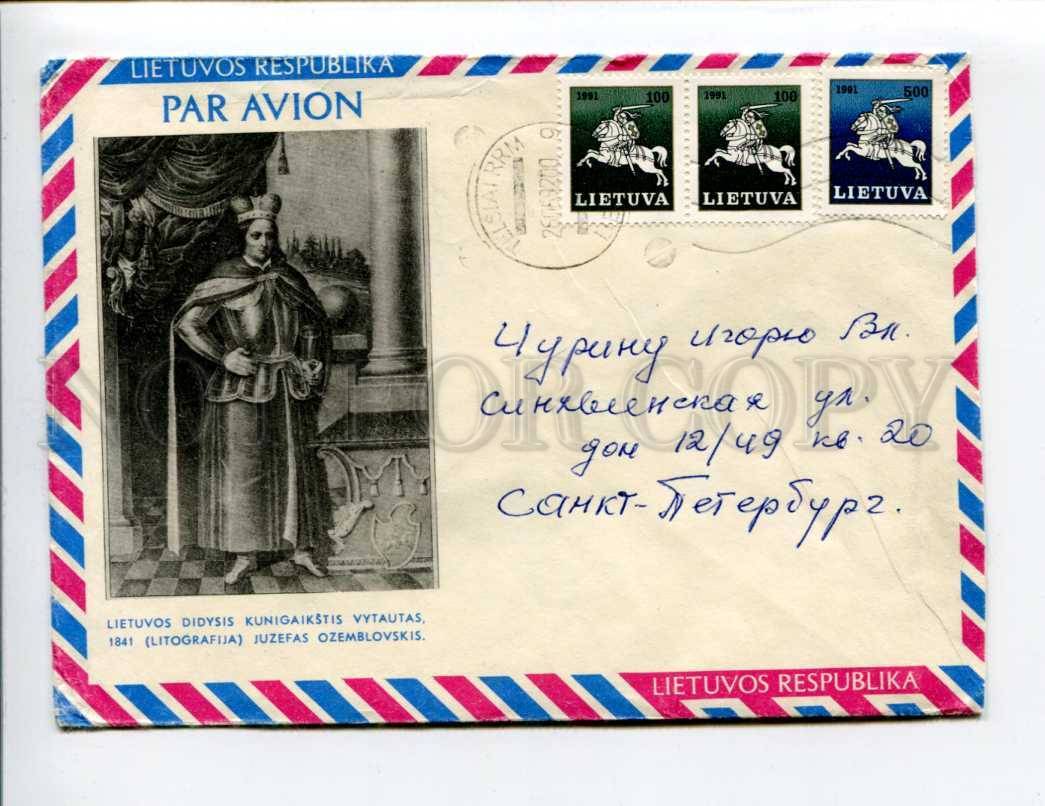 LIETUVOS RESPUBLIKA
PAR AVION
1991 100
LIETUVA
1991 100
LIETUVA
1991 500
LIETUVA
TELŠIAI RRM
Чурину Игорю Вл.
ул.
дом 12/49 кв. 20
Санкт-Петербург.
NOT FOR COPY
LIETUVOS DIDYSIS KUNIGAIKŠTIS VYTAUTAS,
1841 (LITOGRAFIJA) JUZEFAS OZEMBLOVSKIS.
LIETUVOS RESPUBLIKA